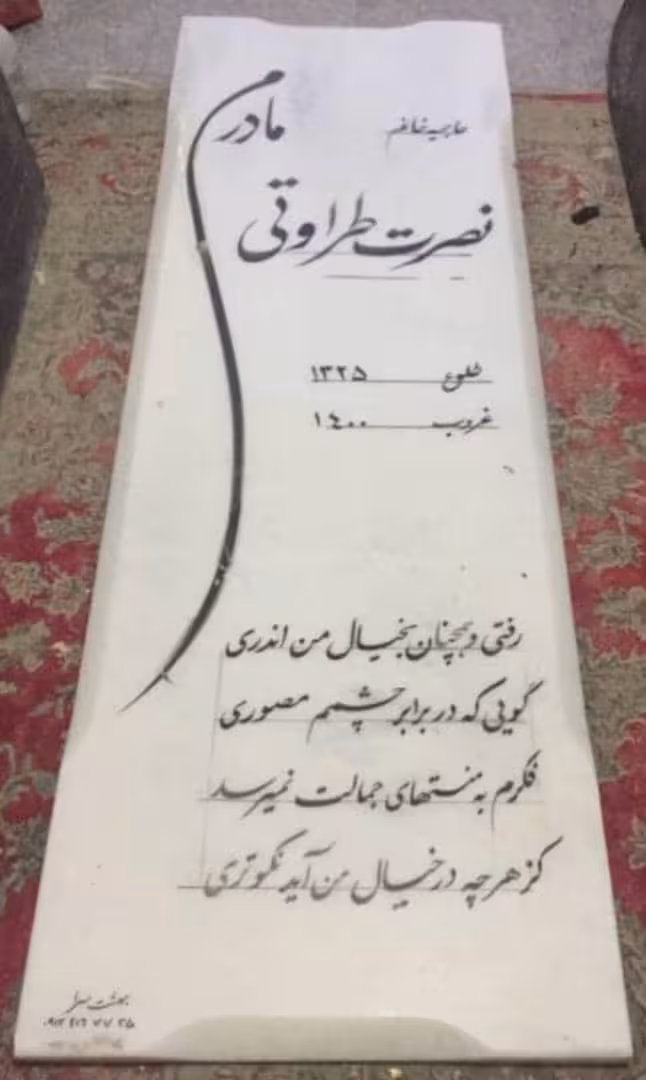 مادرم
حاجیه خانم
نصرت طراوتی
طلوع ۱۳۲۵
غروب ۱۴۰۰
رفتی و همچنان بخیال من اندری
گویی که در برابر چشمم مصوری
فکرم به منتهای جمالت نمیرسد
کز هر چه در خیال من آید نکوتری